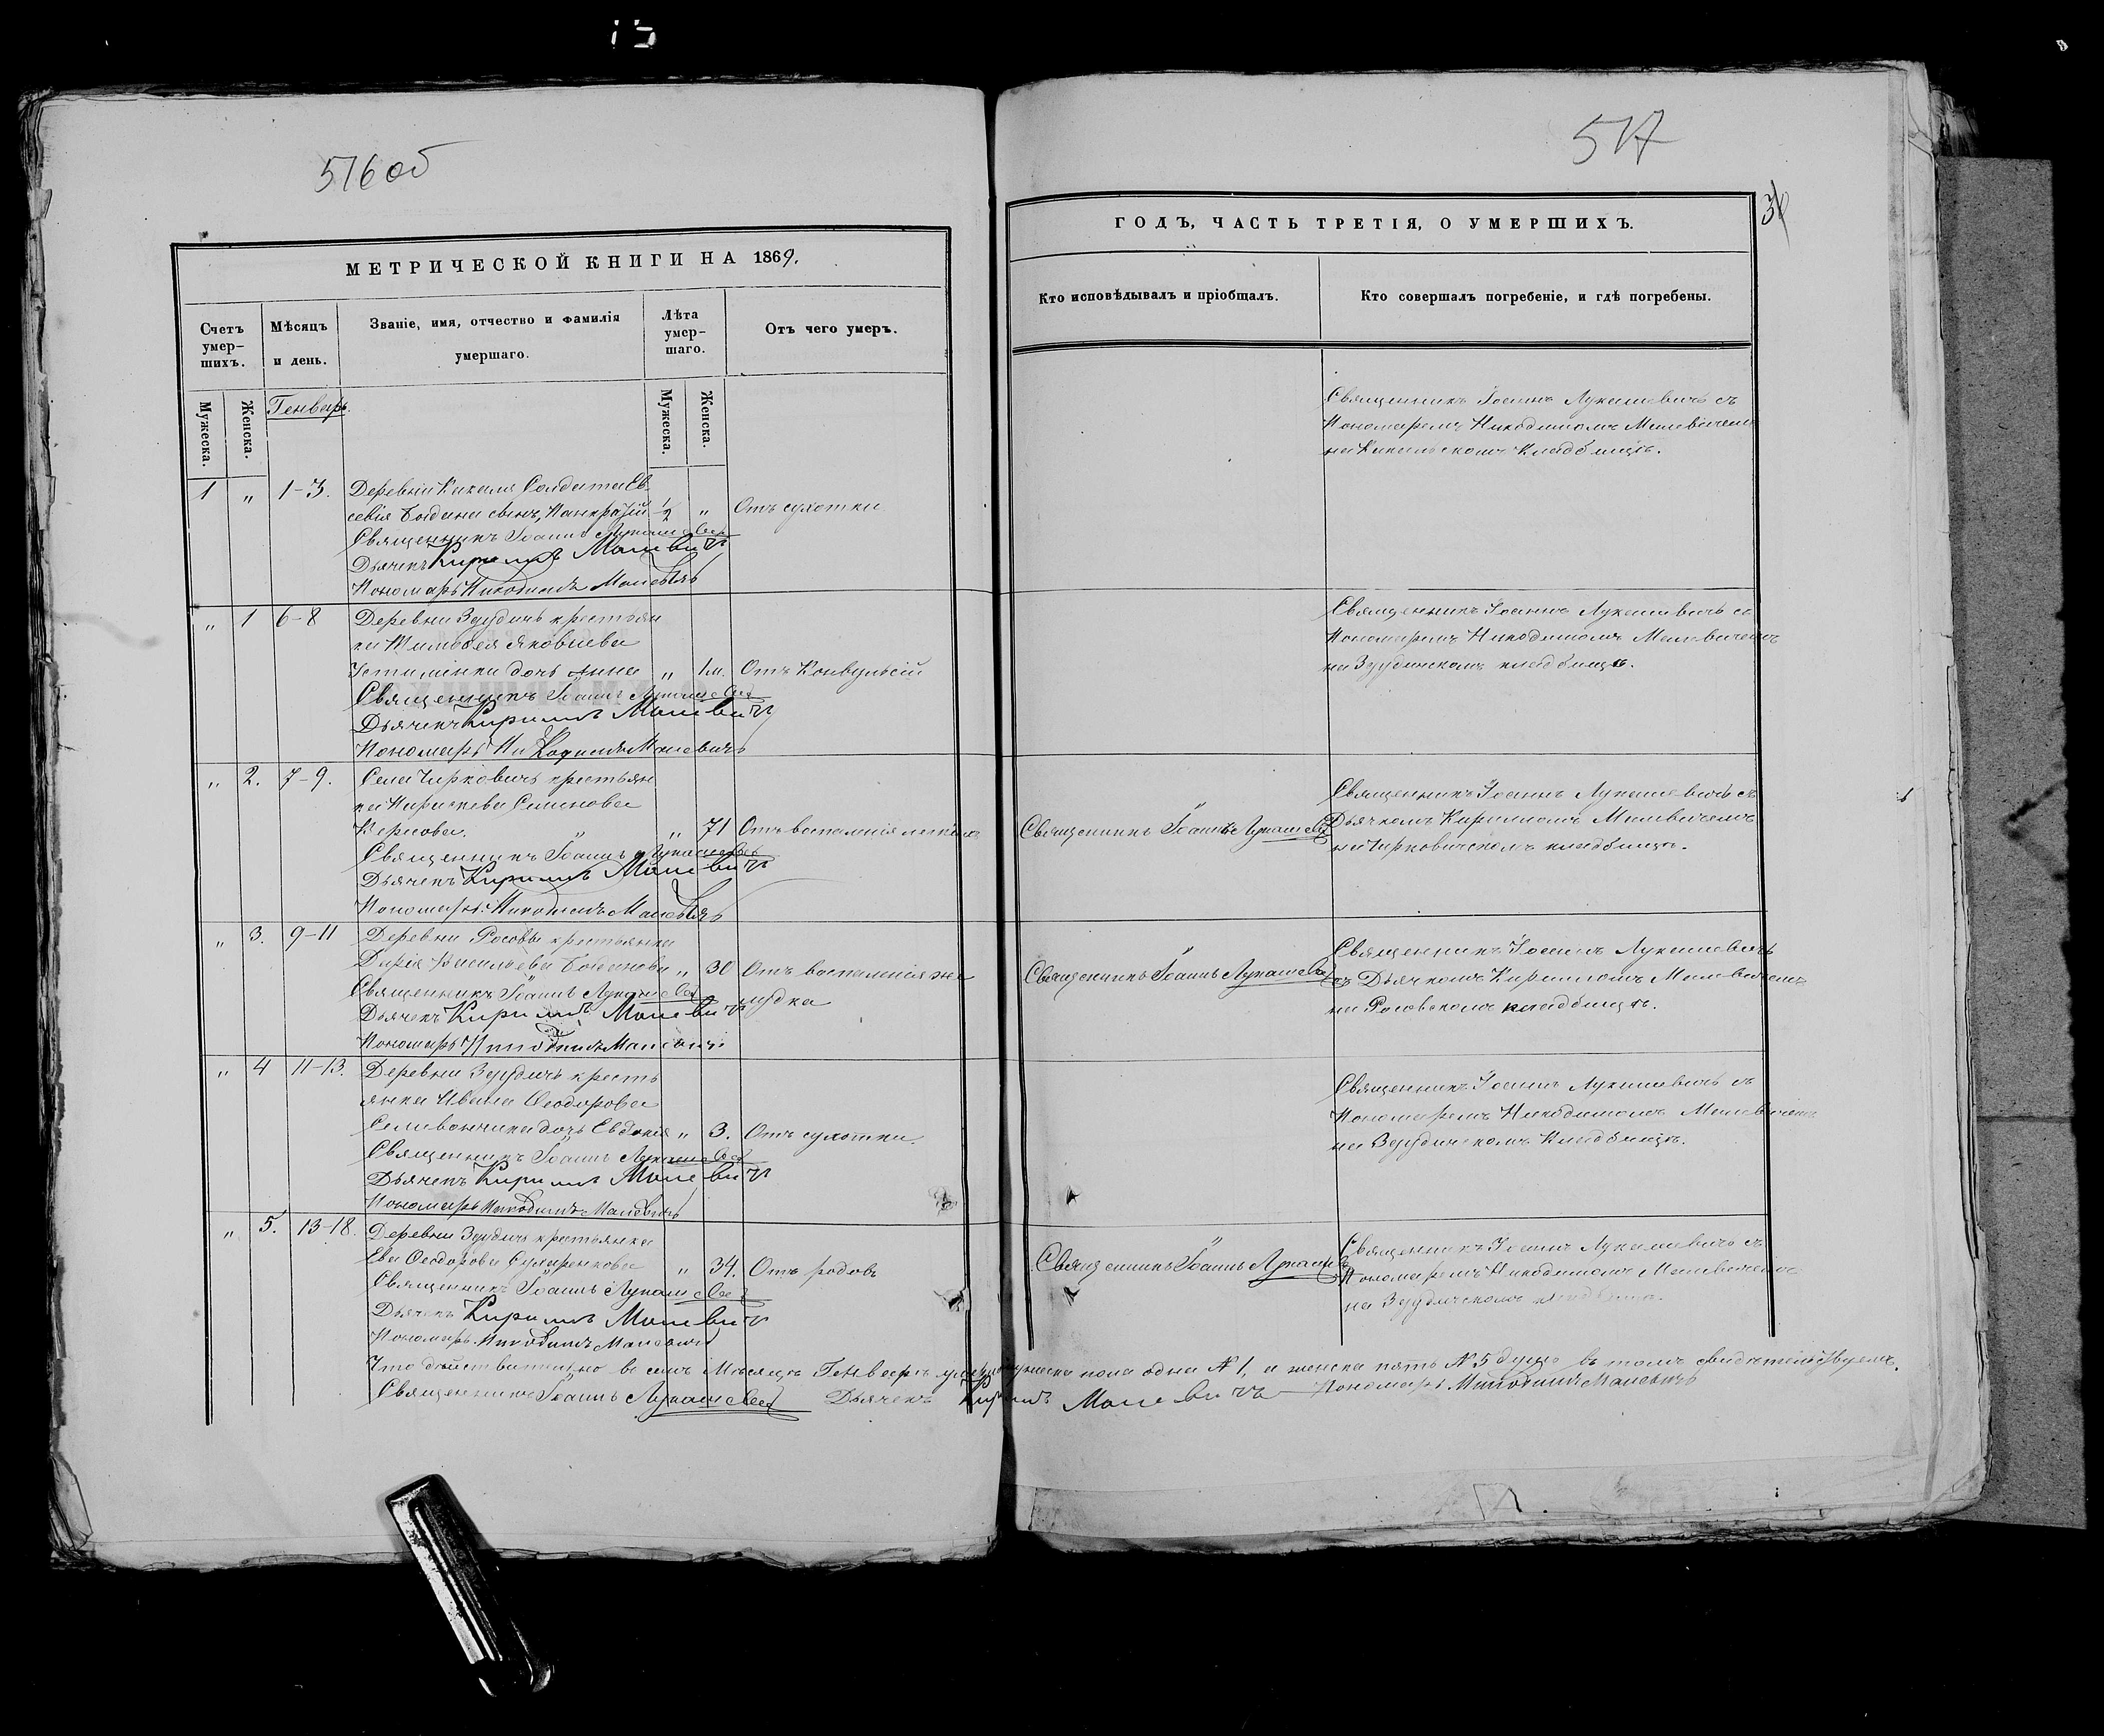 516об
МЕТРИЧЕСКОЙ КНИГИ НА 1869.
Счетъ умер-шихъ.
Мѣсяцъ и день.
Званіе, имя, отчество и фамилія умершаго.
Лѣта умер-шаго.
Отъ чего умеръ.
Мужеска.
Женска.
Генварь.
Мужеска.
Женска.
1 " 1-3. Деревни Солдата Ев
севія Богдана сынъ, 1/2 " Отъ сухотки
Священникъ Іоаннъ Лукашевичъ
Дьячекъ Кириллъ Малевичъ
Пономарь Никодимъ Малевичъ
" 1 6-8 Деревни Зердичь крестьян
ки Яковлева
дочь Анна " 1м. Отъ Конвульсій
Священникъ Іоаннъ Лукашевичъ
Дьячекъ Кириллъ Малевичъ
Пономарь Никодимъ Малевичъ
" 2. 7-9. Села Чирковичь крестьян
ка Параскева Семенова
" 71 Отъ воспаленія легкихъ
Священникъ Іоаннъ Лукашевичъ
Дьячекъ Кириллъ Малевичъ
Пономарь Никодимъ Малевичъ
" 3. 9-11 Деревни Росовы крестьянка
Дарія Васильева Богданова " 30 Отъ воспаленія же
Священникъ Іоаннъ Лукашевичъ лудка
Дьячекъ Кириллъ Малевичъ
Пономарь Никодимъ Малевичъ
" 4 11-13. Деревни Зердичь кресть
янка Ивана Феодорова
дочь Евдокія " 3. Отъ сухотки.
Священникъ Іоаннъ Лукашевичъ
Дьячекъ Кириллъ Малевичъ
Пономарь Никодимъ Малевичъ
" 5. 13-18. Деревни Зердичь крестьянка
Ева Феодорова " 34. Отъ родовъ
Священникъ Іоаннъ Лукашевичъ
Дьячекъ Кириллъ Малевичъ
Пономарь Никодимъ Малевичъ
Что дѣйствительно въ семъ Мѣсяцѣ Генварѣ мужеска пола одна №1, а женска пять №5 душъ въ томъ свидѣтельствуемъ.
Священникъ Іоаннъ Лукашевичъ Дьячекъ Кириллъ Малевичъ Пономарь Никодимъ Малевичъ
517
ГОДЪ, ЧАСТЬ ТРЕТІЯ, О УМЕРШИХЪ.
Кто исповѣдывалъ и пріобщалъ.
Кто совершалъ погребеніе, и гдѣ погребены.
Священникъ Іоаннъ Лукашевичъ съ
Пономаремъ Никодимомъ Малевичемъ
на кладбищѣ.
Священникъ Іоаннъ Лукашевичъ съ
Пономаремъ Никодимомъ Малевичемъ
на Зердичскомъ кладбищѣ.
Священникъ Іоаннъ Лукашевичъ
Священникъ Іоаннъ Лукашевичъ съ
Дьячкомъ Кирилломъ Малевичемъ
на Чирковичскомъ кладбищѣ.
Священникъ Іоаннъ Лукашевичъ
Священникъ Іоаннъ Лукашевичъ
съ Дьячкомъ Кирилломъ Малевичемъ
на Росовскомъ кладбищѣ.
Священникъ Іоаннъ Лукашевичъ съ
Пономаремъ Никодимомъ Малевичемъ
на Зердичскомъ Кладбищѣ.
Священникъ Іоаннъ Лукашевичъ
Священникъ Іоаннъ Лукашевичъ съ
Пономаремъ Никодимомъ Малевичемъ
на Зердичскомъ кладбищѣ.